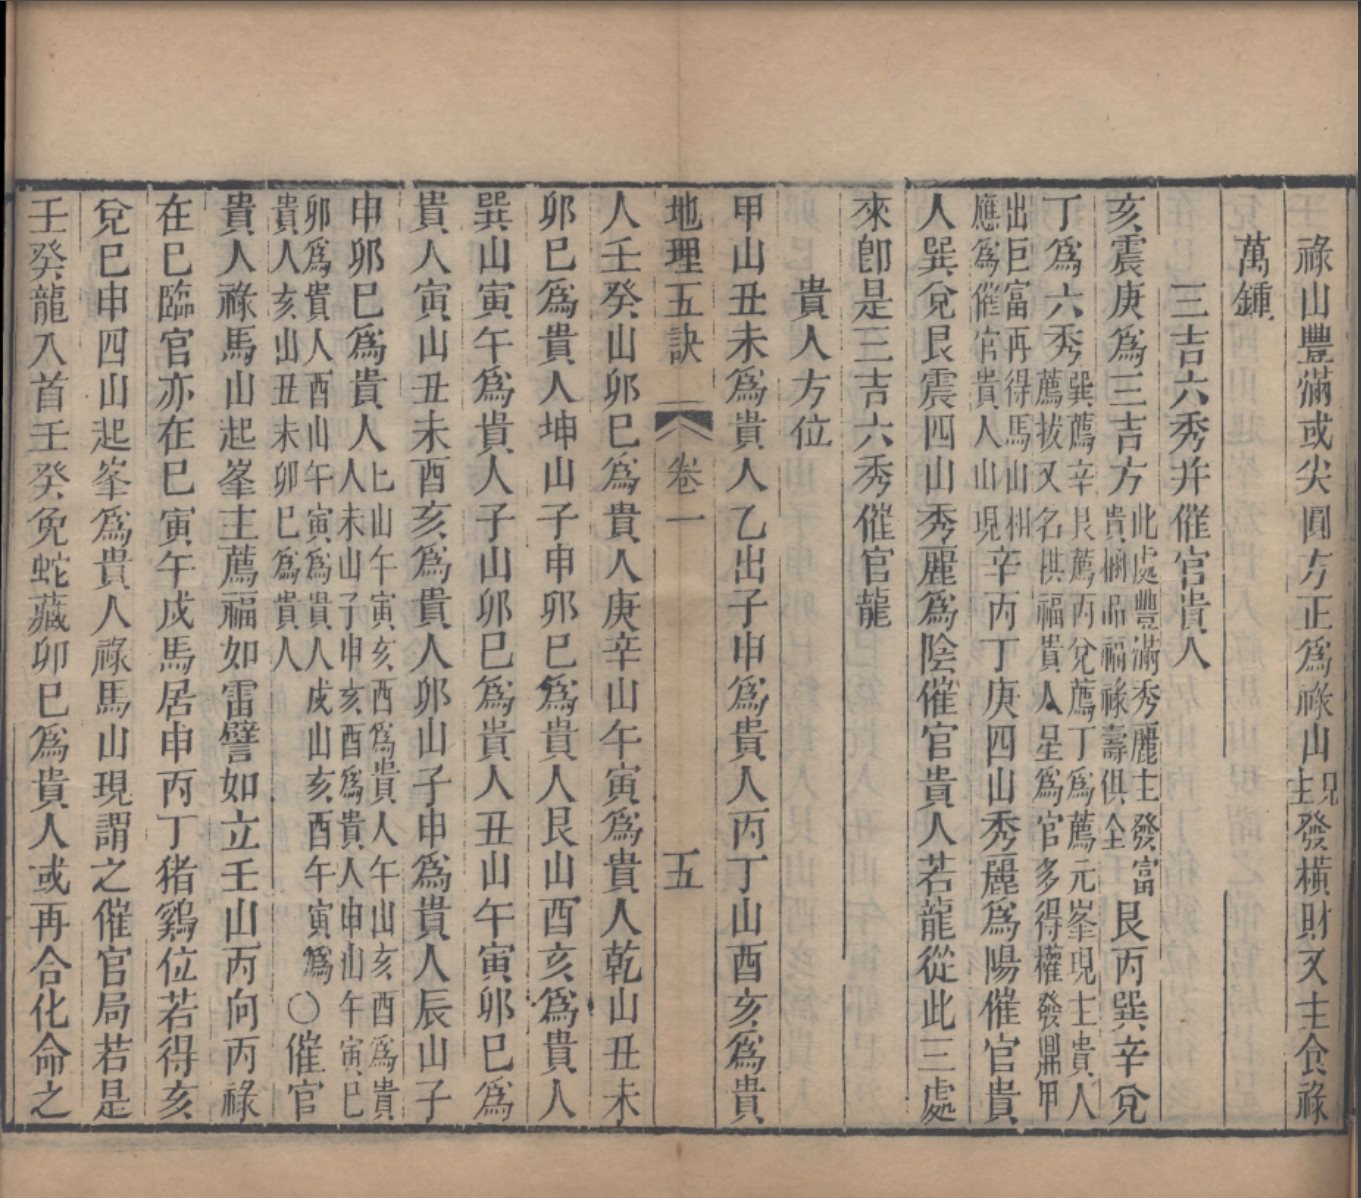 祿山豐滿或尖圓方正為祿山現主發橫財又主食祿
萬鍾
三吉六秀并催官貴人
亥震庚為三吉方此處豐滿秀麗主發富貴攔品福祿壽俱全艮丙巽辛兌
丁為六秀巽薦辛艮薦丙兌薦丁為薦元峯現主貴人薦拔又名棋福貴人星為官多得權發鼎甲
出巨富再得馬山相應為催官貴人山現辛丙丁庚四山秀麗為陽催官貴
人巽兌艮震四山秀麗為陰催官貴人若龍從此三處
來卽是三吉六秀催官龍
貴人方位
甲山丑未為貴人乙出子申為貴人丙丁山酉亥為貴
地理五訣 卷一 五
人壬癸山卯巳為貴人庚辛山午寅為貴人乾山丑未
卯巳為貴人坤山子申卯巳為貴人艮山酉亥為貴人
巽山寅午為貴人子山卯巳為貴人丑山午寅卯巳為
貴人寅山丑未酉亥為貴人卯山子申為貴人辰山子
申卯巳為貴人巳山午寅亥酉為貴人午山亥酉為貴人未山子申亥酉為貴人申山午寅巳
卯為貴人酉山午寅為貴人戍山亥酉午寅為貴人亥山丑未卯巳為貴人○催官
貴人祿馬山起峯主薦福如雷譬如立壬山丙向丙祿
在巳臨官亦在巳寅午戍馬居申丙丁猪鷄位若得亥
兌巳申四山起峯為貴人祿馬山現謂之催官局若是
壬癸龍入首壬癸兔蛇藏卯巳為貴人或再合化命之